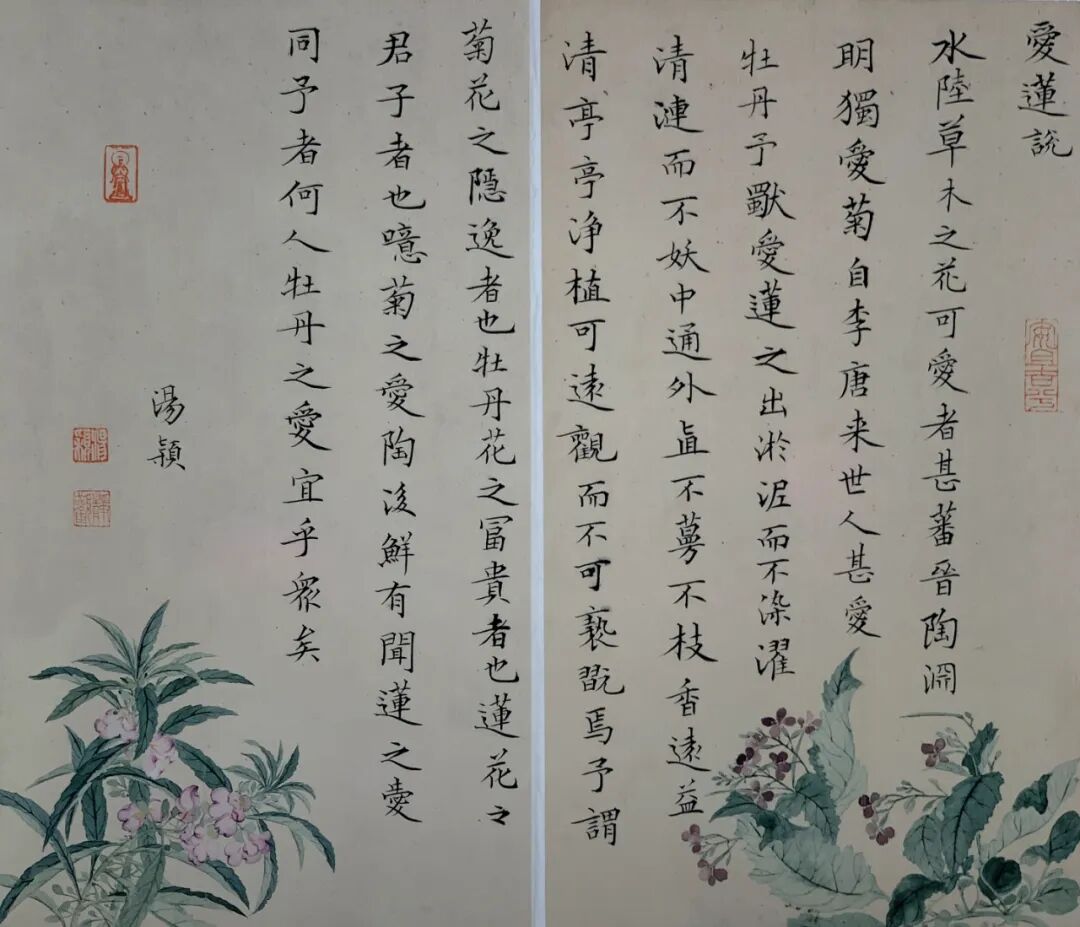 愛蓮說
水陸草木之花可愛者甚蕃晉陶淵
明獨愛菊自李唐来世人甚愛
牡丹予獨愛蓮之出淤泥而不染濯
清漣而不妖中通外直不蔓不枝香遠益
清亭亭净植可遠觀而不可褻翫焉予謂
菊花之隱逸者也牡丹花之冨貴者也蓮花之
君子者也噫菊之愛陶後鮮有聞蓮之愛
同予者何人牡丹之愛宜乎眾矣
湯穎